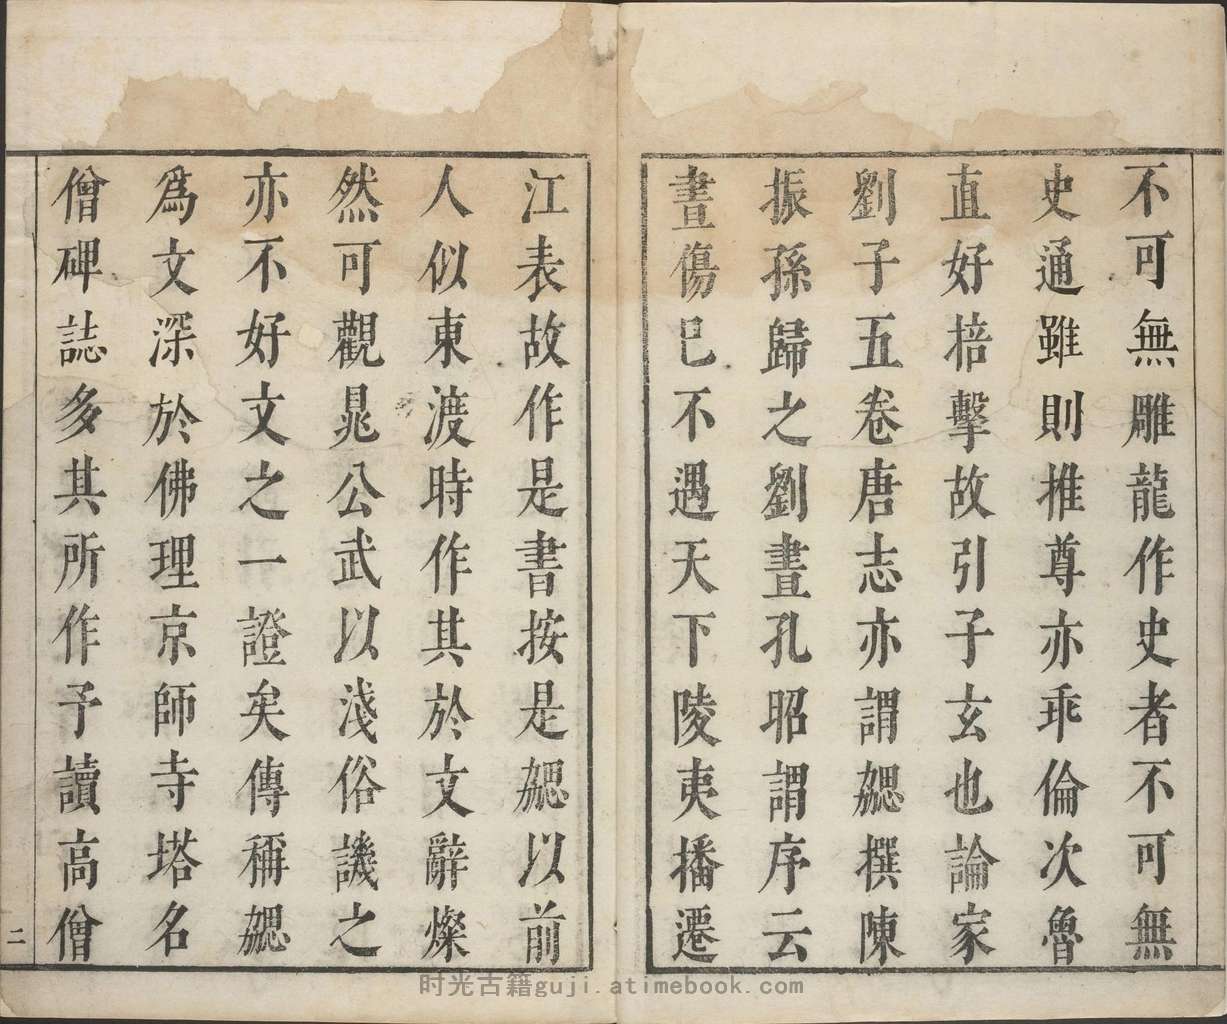 不可無雕龍作史者不可無
史通雖則推尊亦乖倫次魯
直好掊擊故引子玄也論家
劉子五卷唐志亦謂勰撰陳
振孫歸之劉晝孔昭謂序云
晝傷己不遇天下陵夷播遷
江表故作是書按是勰以前
人似東渡時作其於文辭燦
然可觀晁公武以淺俗譏之
亦不好文之一證矣傳稱勰
為文深於佛理京師寺塔名
僧碑誌多其所作予讀高僧
二
时光古籍guji.atimebook.com